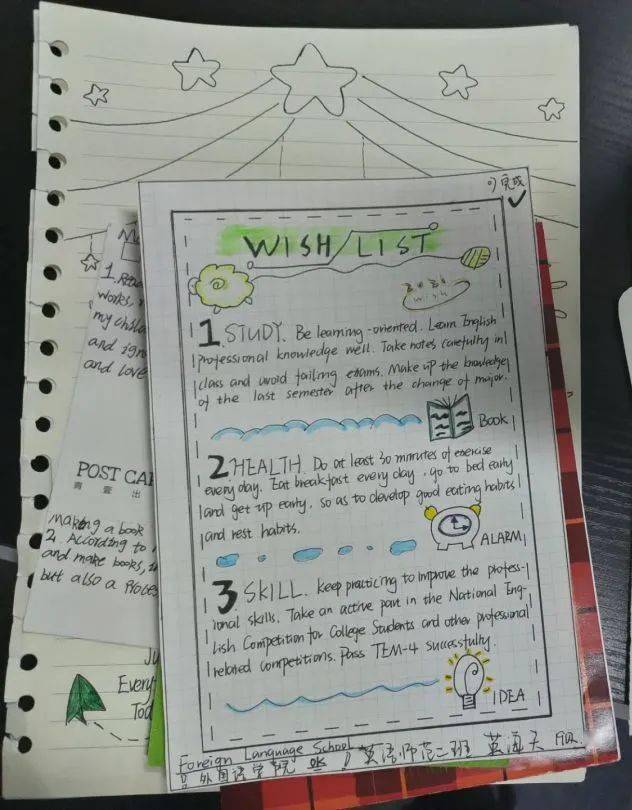 完成
WISH LIST
2021
wish
1. STUDY. Be learning-oriented. Learn English
professional knowledge well. Take notes carefully in
class and avoid failing exams. Make up the knowledge
of the last semester after the change of major.
Book
2 HEALTH. Do at least 30 minutes of exercise
every day. Eat breakfast every day, go to bed early
and get up early, so as to develop good eating habits
and rest habits.
ALARM
3 SKILL. keep practicing to improve the profess-
ional skills. Take an active part in the National Eng-
lish Competition for College Students and other professional
related competitions. Pass TEM-4 successfully.
IDEA
Foreign Language School
外国语学院 英语师范二班
1. Read
works,
my child
and ign
and love
POST CAR
青 壹 出
Making a book
2. According to
and make books,
but also a Proces
Ju
Every
Tod